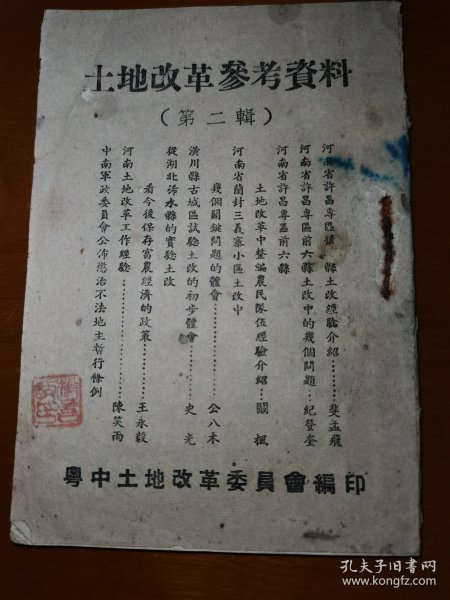 土地改革參考資料
（第二輯）
河南省許昌專區後 縣土改經驗介紹………斐孟飛
河南省許昌專區前六縣土改中的幾個問題…紀登奎
河南省許昌專區前六縣
土地改革中整編農民隊伍經驗介紹…國楓
河南省蘭封三義寨小區土改中
幾個關鍵問題的體會………公八木
潢川縣古城區試驗土改的初步體會………史光
從湖北浠水縣的實驗土改
看今後保存富農經濟的政策………王永毅
河南土地改革工作經驗………陳笑雨
中南軍政委員會公佈懲治不法地主暫行條例
粵中土地改革委員會編印
孔夫子旧书网
www.kongfz.com